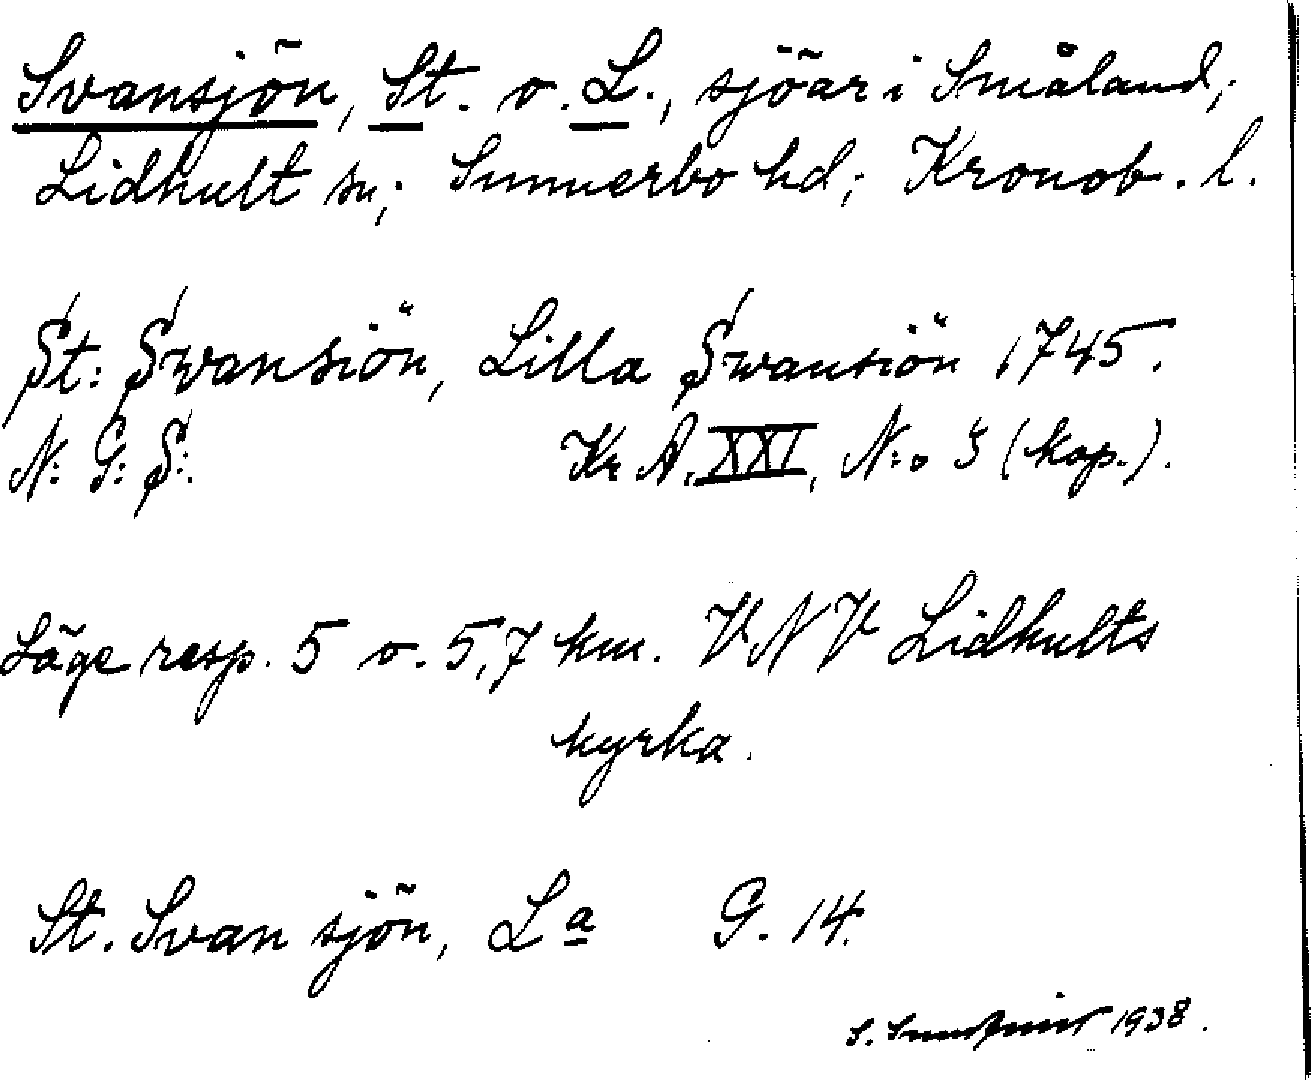 Svansjön, St. o. L., sjöar i Småland;
Lidhult sn; Sunnerbo hd; Kronob. l.
St: Swansiön, Lilla Swansiön 1745.
N: G: S: Kr A. XXI, N:o 3 (kop.).
Läge resp. 5 o. 5,7 km. VNV Lidhults
kyrka.
St. Svansjön, La G. 14.
S. 1938.